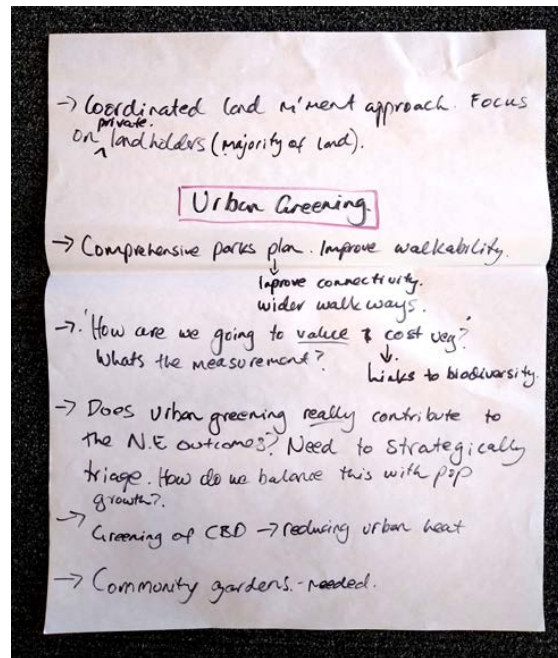 → Coordinated land m'ment approach. Focus
private.
on ^ landholders (majority of land).
Urban Greening.
→ Comprehensive parks plan. Improve walkability.
↓
Improve connectivity.
wider walkways.
→ 'How are we going to value & cost veg?'
Whats the measurement?
↓
Links to biodiversity.
→ Does urban greening really contribute to
the N.E outcomes? Need to strategically
triage. How do we balance this with pop
growth?.
→ Greening of CBD → reducing urban heat
→ Community gardens. - needed.